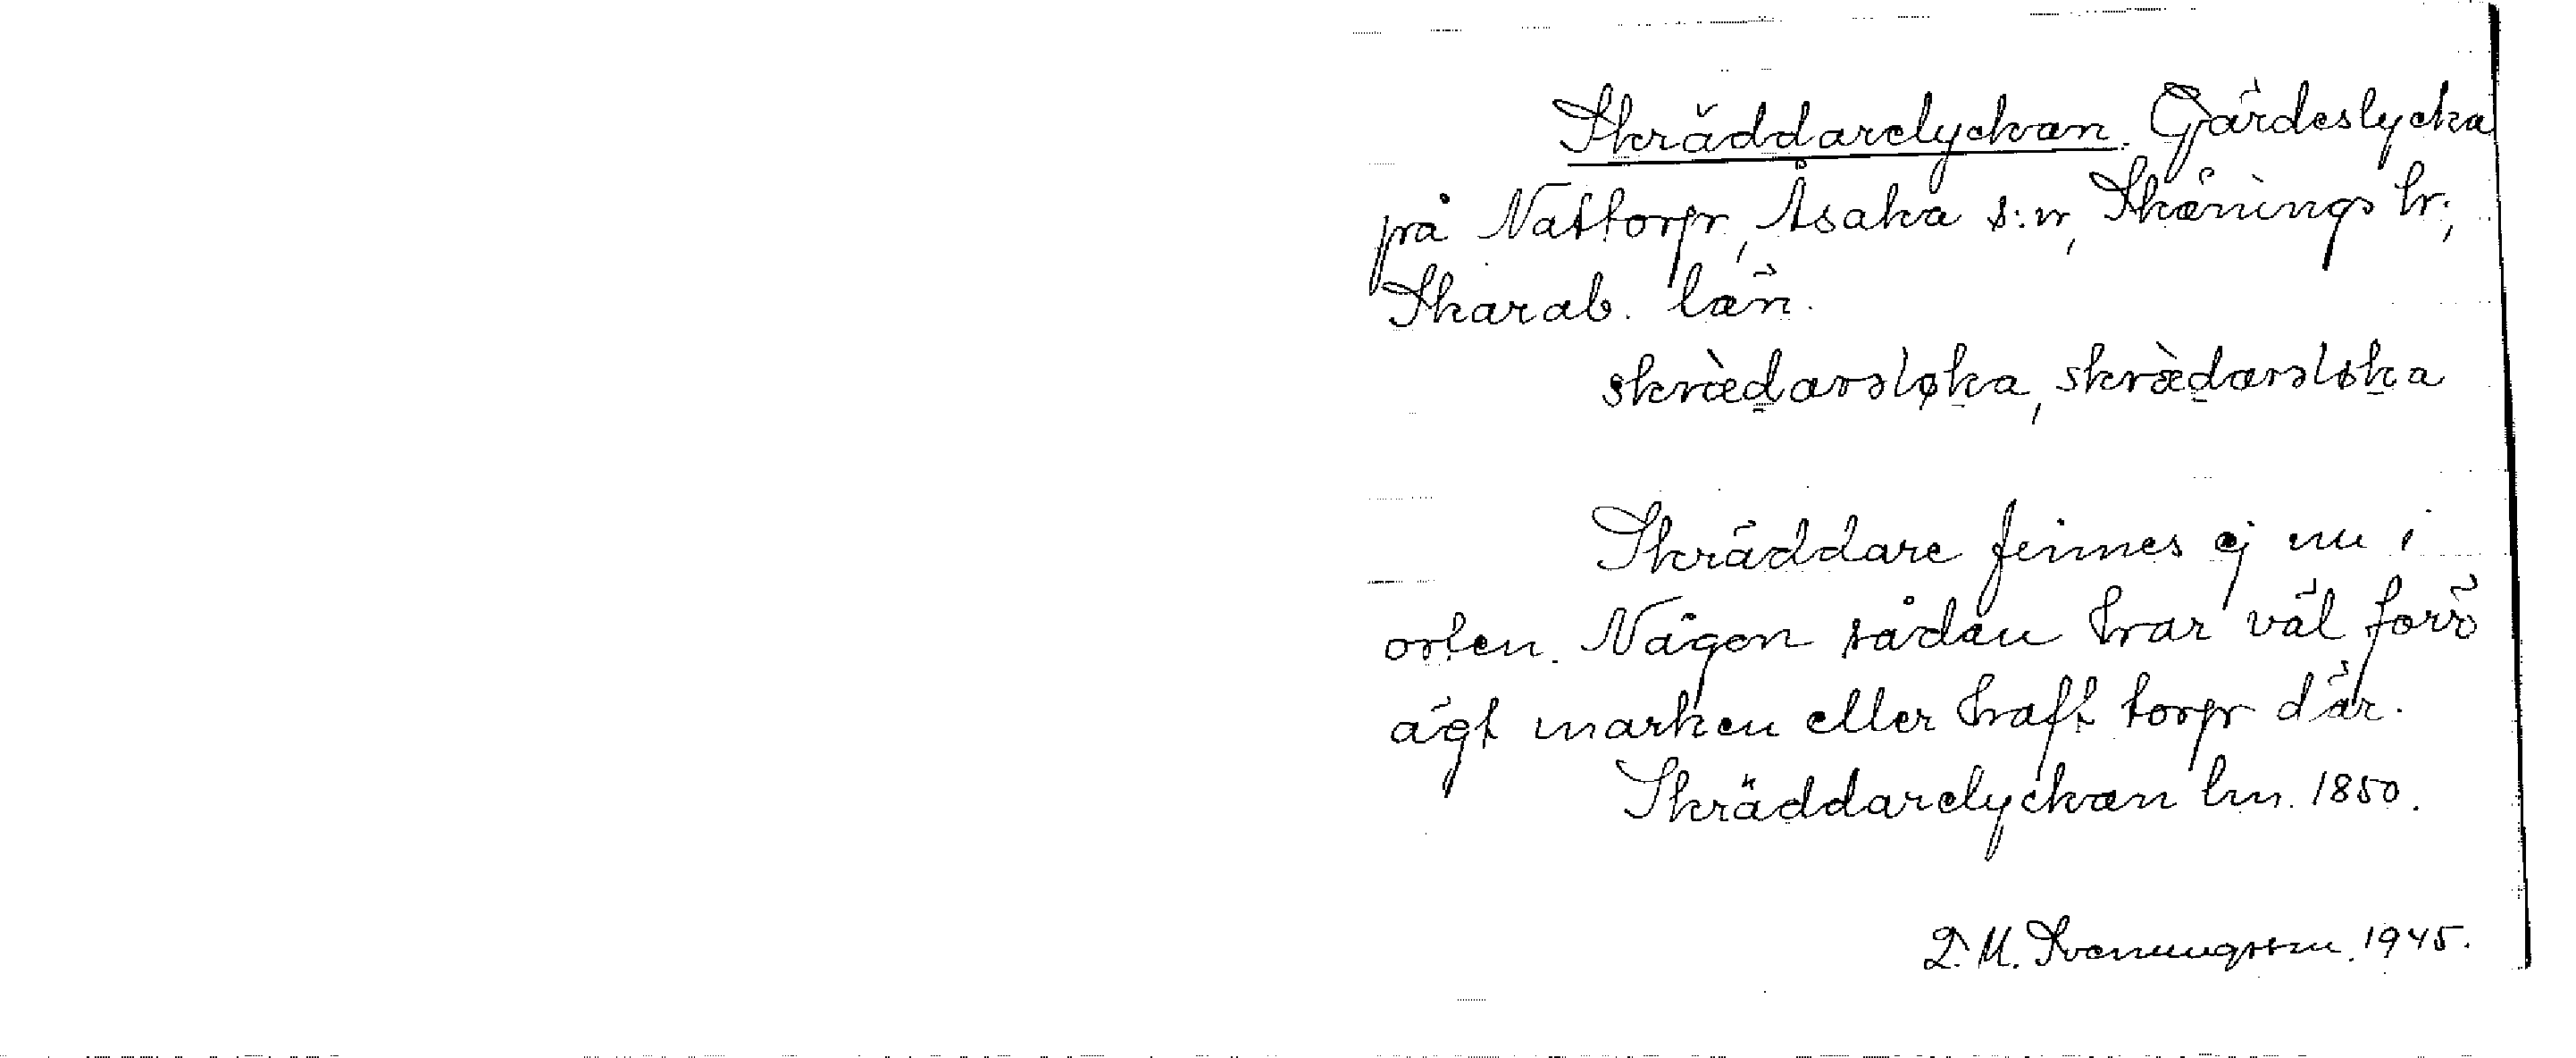 Skräddarelyckan. Gärdeslycka
på Nattorp, Åsaka s:n, Skånings hr;
Skarab. län.
skræ̀darəløka, skræ̀darəløka
Skräddare finnes ej nu i
orten. Någon sådan har väl förr
ägt marken eller haft torp där.
Skräddarelyckan hm. 1850.
D. M. Svenungsson. 1945.